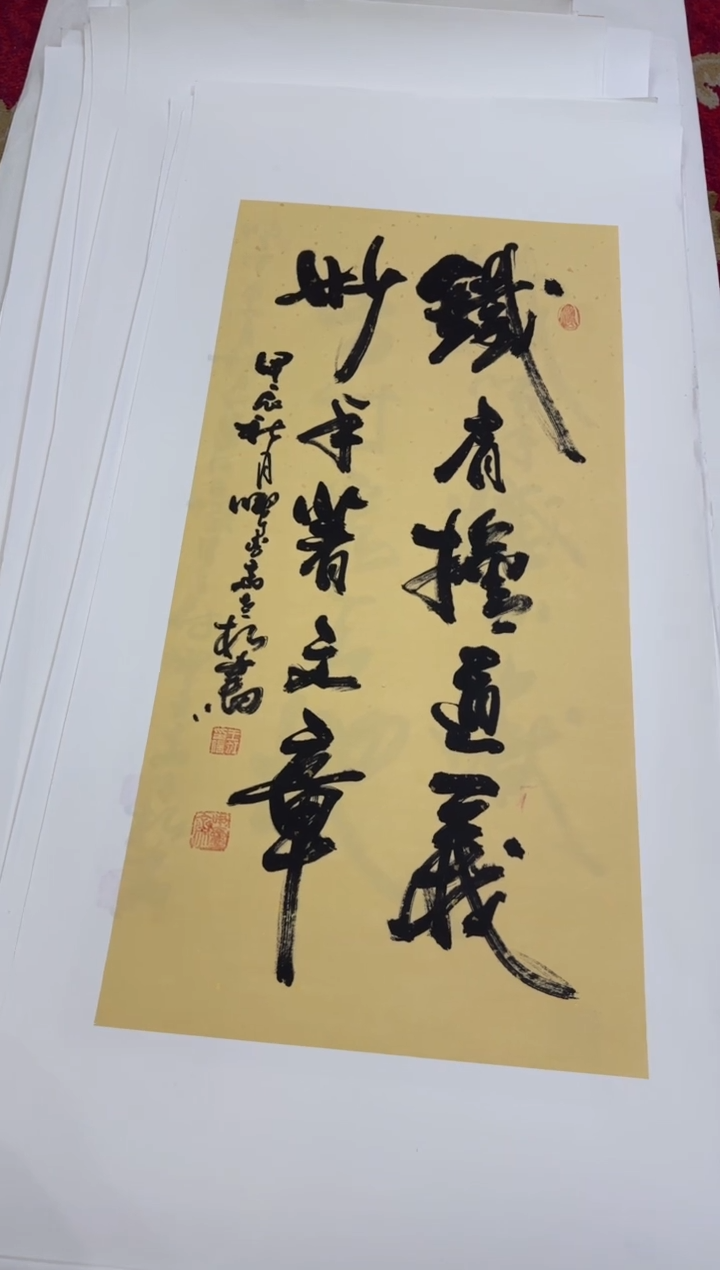 鐵肩擔道義
妙手著文章
甲辰秋月